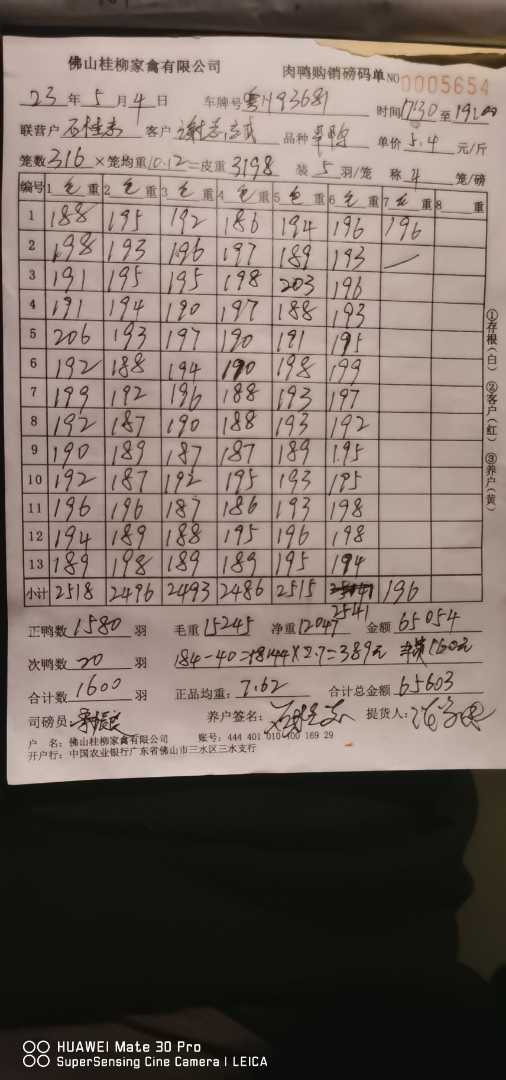 佛山桂柳家禽有限公司 肉鸭购销磅码单 NO 0005654
23 年 5 月 4 日 车牌号 93681 时间 17:30 至 19:00
联营户 客户 品种 单价 5.4 元/斤
笼数 316 × 笼均重 10.12 = 皮重 3198 装 5 羽/笼 称 4 笼/磅
编号 1 毛 重 2 毛 重 3 毛 重 4 毛 重 5 毛 重 6 毛 重 7 毛 重 8 重
1 188 195 192 186 194 196 196
2 198 193 196 197 189 193
3 191 195 195 198 203 196
4 191 194 190 197 188 193
5 206 193 197 190 191 195
6 192 188 194 190 198 199
7 199 192 196 188 193 197
8 192 187 190 188 193 192
9 190 189 187 187 189 195
10 192 187 192 195 193 195
11 196 196 187 186 193 198
12 194 189 188 195 196 198
13 189 198 189 189 195 194
小计 2518 2496 2493 2486 2515 2541 196
正鸭数 1580 羽 毛重 15245 净重 12047 金额 65054
次鸭数 20 羽 184-40=144×2.7=389元 160元
合计数 1600 羽 正品均重: 7.62 合计总金额 65603
司磅员 养户签名: 提货人:
户 名: 佛山桂柳家禽有限公司 账号: 444 401 010 400 169 29
开户行: 中国农业银行广东省佛山市三水区三水支行
①存根(白) ②客户(红) ③养户(黄)
HUAWEI Mate 30 Pro
SuperSensing Cine Camera | LEICA